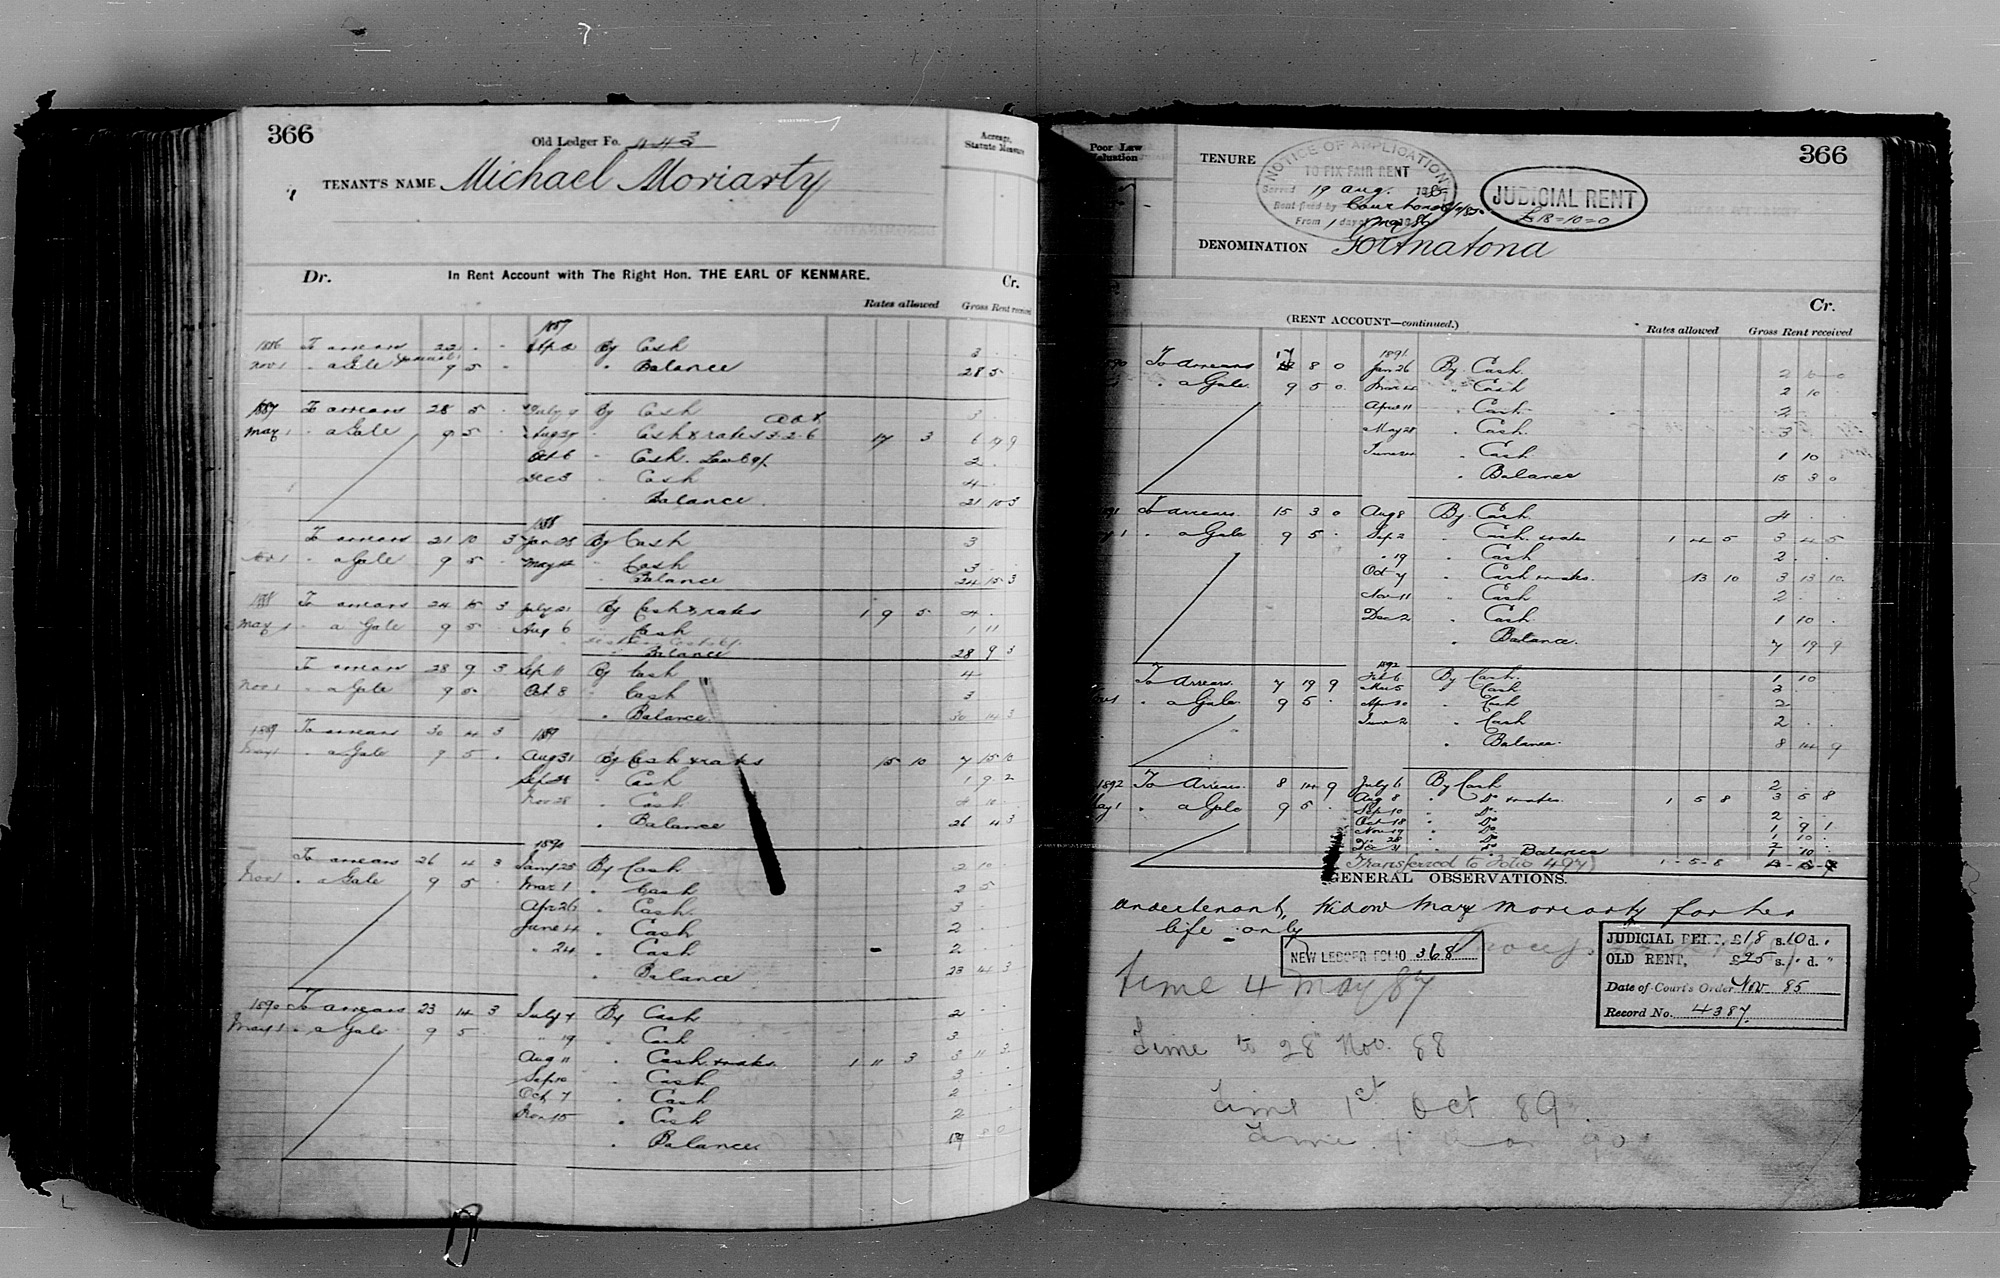 366
Old Ledger Fo. 443
TENANT'S NAME Michael Moriarty
Acreage, Statute Measure
Dr. In Rent Account with The Right Hon. THE EARL OF KENMARE. Cr.
Rates allowed Gross Rent received
1887
1886 To arrears 22 . . By Cash 3 . .
Nov 1 " a Gale 9 5 . " Balance 28 5 .
1887 To arrears 28 5 . July 9 By Cash 3 . .
May 1 " a Gale 9 5 . Aug 27 " Cash & rates 3.2.6 17 3 6 19 9
Oct 6 " Cash 2 . .
Dec 3 " Cash 4 . .
" Balance 21 10 3
1888
To arrears 21 10 3 Jan 28 By Cash 3 . .
Nov 1 " a Gale 9 5 . May 12 " Cash 3 . .
" Balance 24 15 3
1888 To arrears 24 15 3 July 21 By Cash & rates 1 9 5 4 . .
May 1 " a Gale 9 5 . Aug 6 " Cash 1 11
" Balance 28 9 3
To arrears 28 9 3 Sep 11 By Cash 4
Nov 1 " a Gale 9 5 Oct 8 " Cash 3
" Balance 30 14 3
1889 To arrears 30 14 3 1889
May 1 " a Gale 9 5 . Aug 31 By Cash & rates 15 10 7 15 10
Sep 28 " Cash 1 9 2
Nov 28 " Cash 4 10 .
" Balance 26 4 3
1890
To arrears 26 4 3 Jany 25 By Cash 2 10
Nov 1 " a Gale 9 5 . Mar 1 " Cash 2 5
Apr 26 " Cash 3 .
June 4 " Cash 2 .
" 24 " Cash 2 .
" Balance 23 14 3
1890 To arrears 23 14 3 July 7 By Cash 2 .
May 1 " a Gale 9 5 " 19 " Cash 3
Aug 11 " Cash & rates 1 11 3 3 11 3
Sep 10 " Cash 3
Oct 7 " Cash 2
Nov 15 " Cash 2
" Balance 17 8 0
Poor Law Valuation
TENURE
NOTICE OF APPLICATION
TO FIX FAIR RENT
Served 19 Aug.
Rent fixed by Court
From 1 day of
JUDICIAL RENT
£18=10=0
366
DENOMINATION Gortnatona
Cr.
(RENT ACCOUNT—continued.) Rates allowed Gross Rent received
1891
To Arrears 17 8 0 Jan 26 By Cash 2 . 0
" a Gale 9 5 0 " Cash 2 10
April 11 " Cash 2 .
May 28 " Cash 3 .
June " Cash 1 10
" Balance 15 3 0
To Arrears 15 3 0 Aug 8 By Cash 4 . .
" a Gale 9 5 . Sep 2 " Cash & rates 1 4 5 3 4 5
" 19 " Cash 2 . .
Oct 7 " Cash & rates 13 10 3 13 10
Nov 11 " Cash 2 .
Dec 2 " Cash 1 10 .
" Balance 7 19 9
1892
To Arrears 7 19 9 Feb 6 By Cash 1 10
" a Gale 9 5 . Mar 5 " Cash 3
Apr 30 " Cash 2
June 2 " Cash 2
" Balance 8 14 9
1892 To Arrears 8 14 9 July 6 By Cash 2 . .
May 1 " a Gale 9 5 . Aug 8 " Do & rates 1 5 8 3 5 8
Sep 10 " Do 2 .
Oct 18 " Do 1 9 1
Nov 19 " Do 1 10
" 26 " Do 2 10
Dec 31 " Do
Balance
Transferred to Folio 497 1 - 5 - 8
GENERAL OBSERVATIONS.
Undertenant, Widow Mary Moriarty for her
life only
NEW LEDGER FOLIO 368
JUDICIAL RENT, £18 s.10 d. "
OLD RENT, £25 s. " d. "
Date of Court's Order Nov 85
Record No. 4387.
time 4 May 87
Time to 28 Nov. 88
Time 1st Oct 89.
Time 90